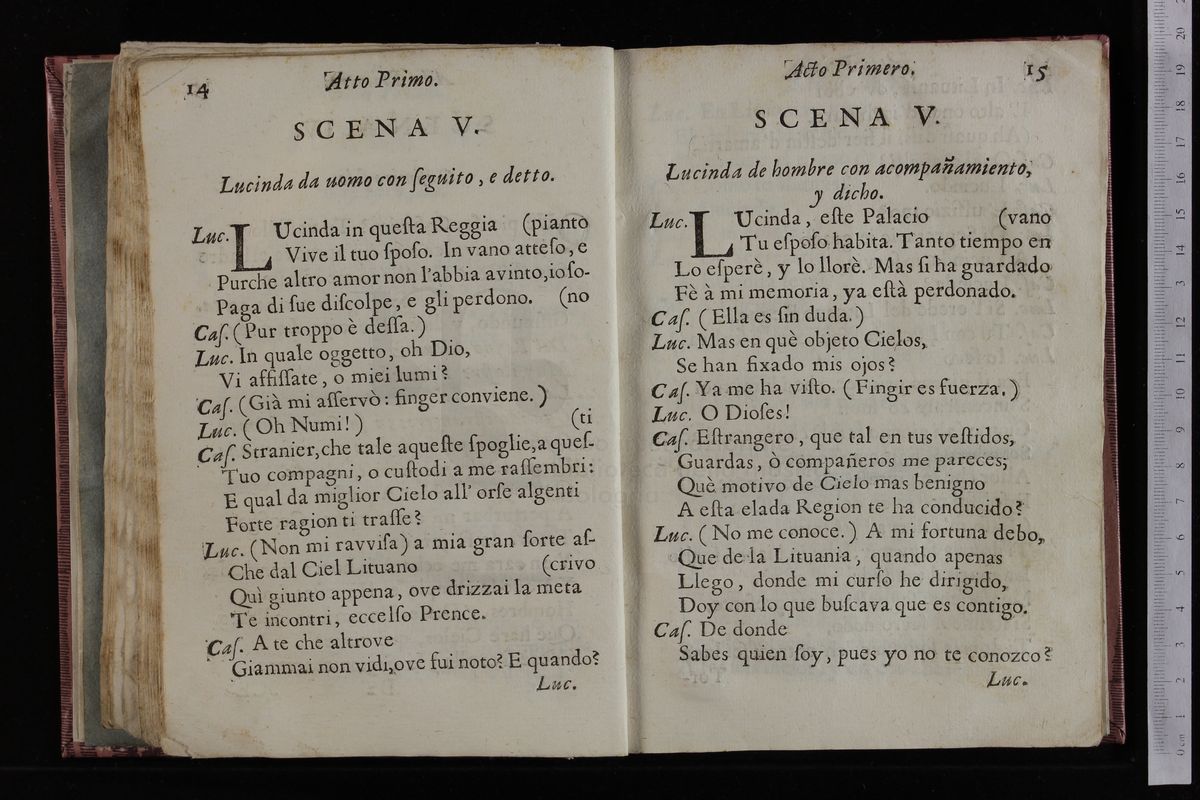 14
Atto Primo.
SCENA V.
Lucinda da uomo con ſeguito, e detto.
Luc. LUcinda in queſta Reggia (pianto
Vive il tuo ſpoſo. In vano atteſo, e
Purche altro amor non l'abbia avinto, io ſo-
Paga di ſue diſcolpe, e gli perdono. (no
Caſ. (Pur troppo è deſſa.)
Luc. In quale oggetto, oh Dio,
Vi affiſſate, o miei lumi?
Caſ. (Già mi aſſervò: finger conviene.)
Luc. (Oh Numi!) (ti
Caſ. Stranier, che tale aqueſte ſpoglie, a queſ-
Tuo compagni, o cuſtodi a me raſſembri:
E qual da miglior Cielo all' orſe algenti
Forte ragion ti traſſe?
Luc. (Non mi ravviſa) a mia gran ſorte aſ-
Che dal Ciel Lituano (crivo
Quì giunto appena, ove drizzai la meta
Te incontri, eccelſo Prence.
Caſ. A te che altrove
Giammai non vidi, ove fui noto? E quando?
Luc.
Acto Primero.
15
SCENA V.
Lucinda de hombre con acompañamiento,
y dicho.
Luc. LUcinda, eſte Palacio (vano
Tu eſpoſo habita. Tanto tiempo en
Lo eſperè, y lo llorè. Mas ſi ha guardado
Fè à mi memoria, ya eſtà perdonado.
Caſ. (Ella es ſin duda.)
Luc. Mas en què objeto Cielos,
Se han fixado mis ojos?
Caſ. Ya me ha viſto. (Fingir es fuerza.)
Luc. O Dioſes!
Caſ. Eſtrangero, que tal en tus veſtidos,
Guardas, ò compañeros me pareces;
Què motivo de Cielo mas benigno
A eſta elada Region te ha conducido?
Luc. (No me conoce.) A mi fortuna debo,
Que de la Lituania, quando apenas
Llego, donde mi curſo he dirigido,
Doy con lo que buſcava que es contigo.
Caſ. De donde
Sabes quien ſoy, pues yo no te conozco?
Luc.